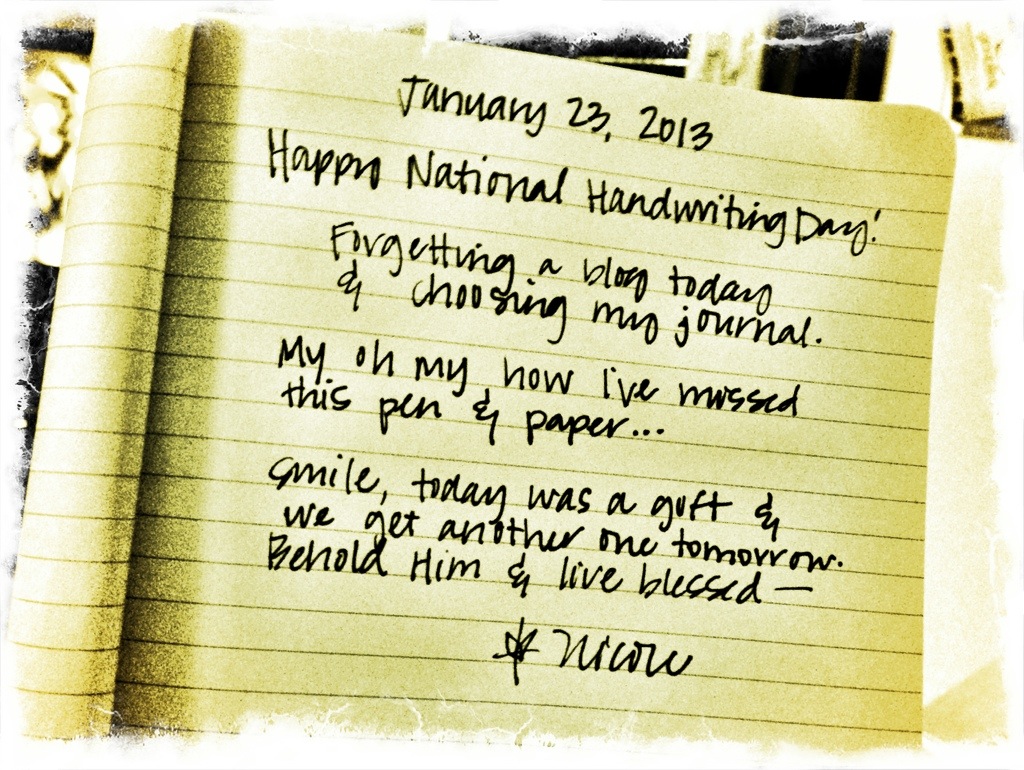 January 23, 2013
Happy National Handwriting Day!
Forgetting a blog today
& choosing my journal.
My oh my how i've missed
this pen & paper...
Smile, today was a gift &
we get another one tomorrow.
Behold Him & live blessed —
Nicole